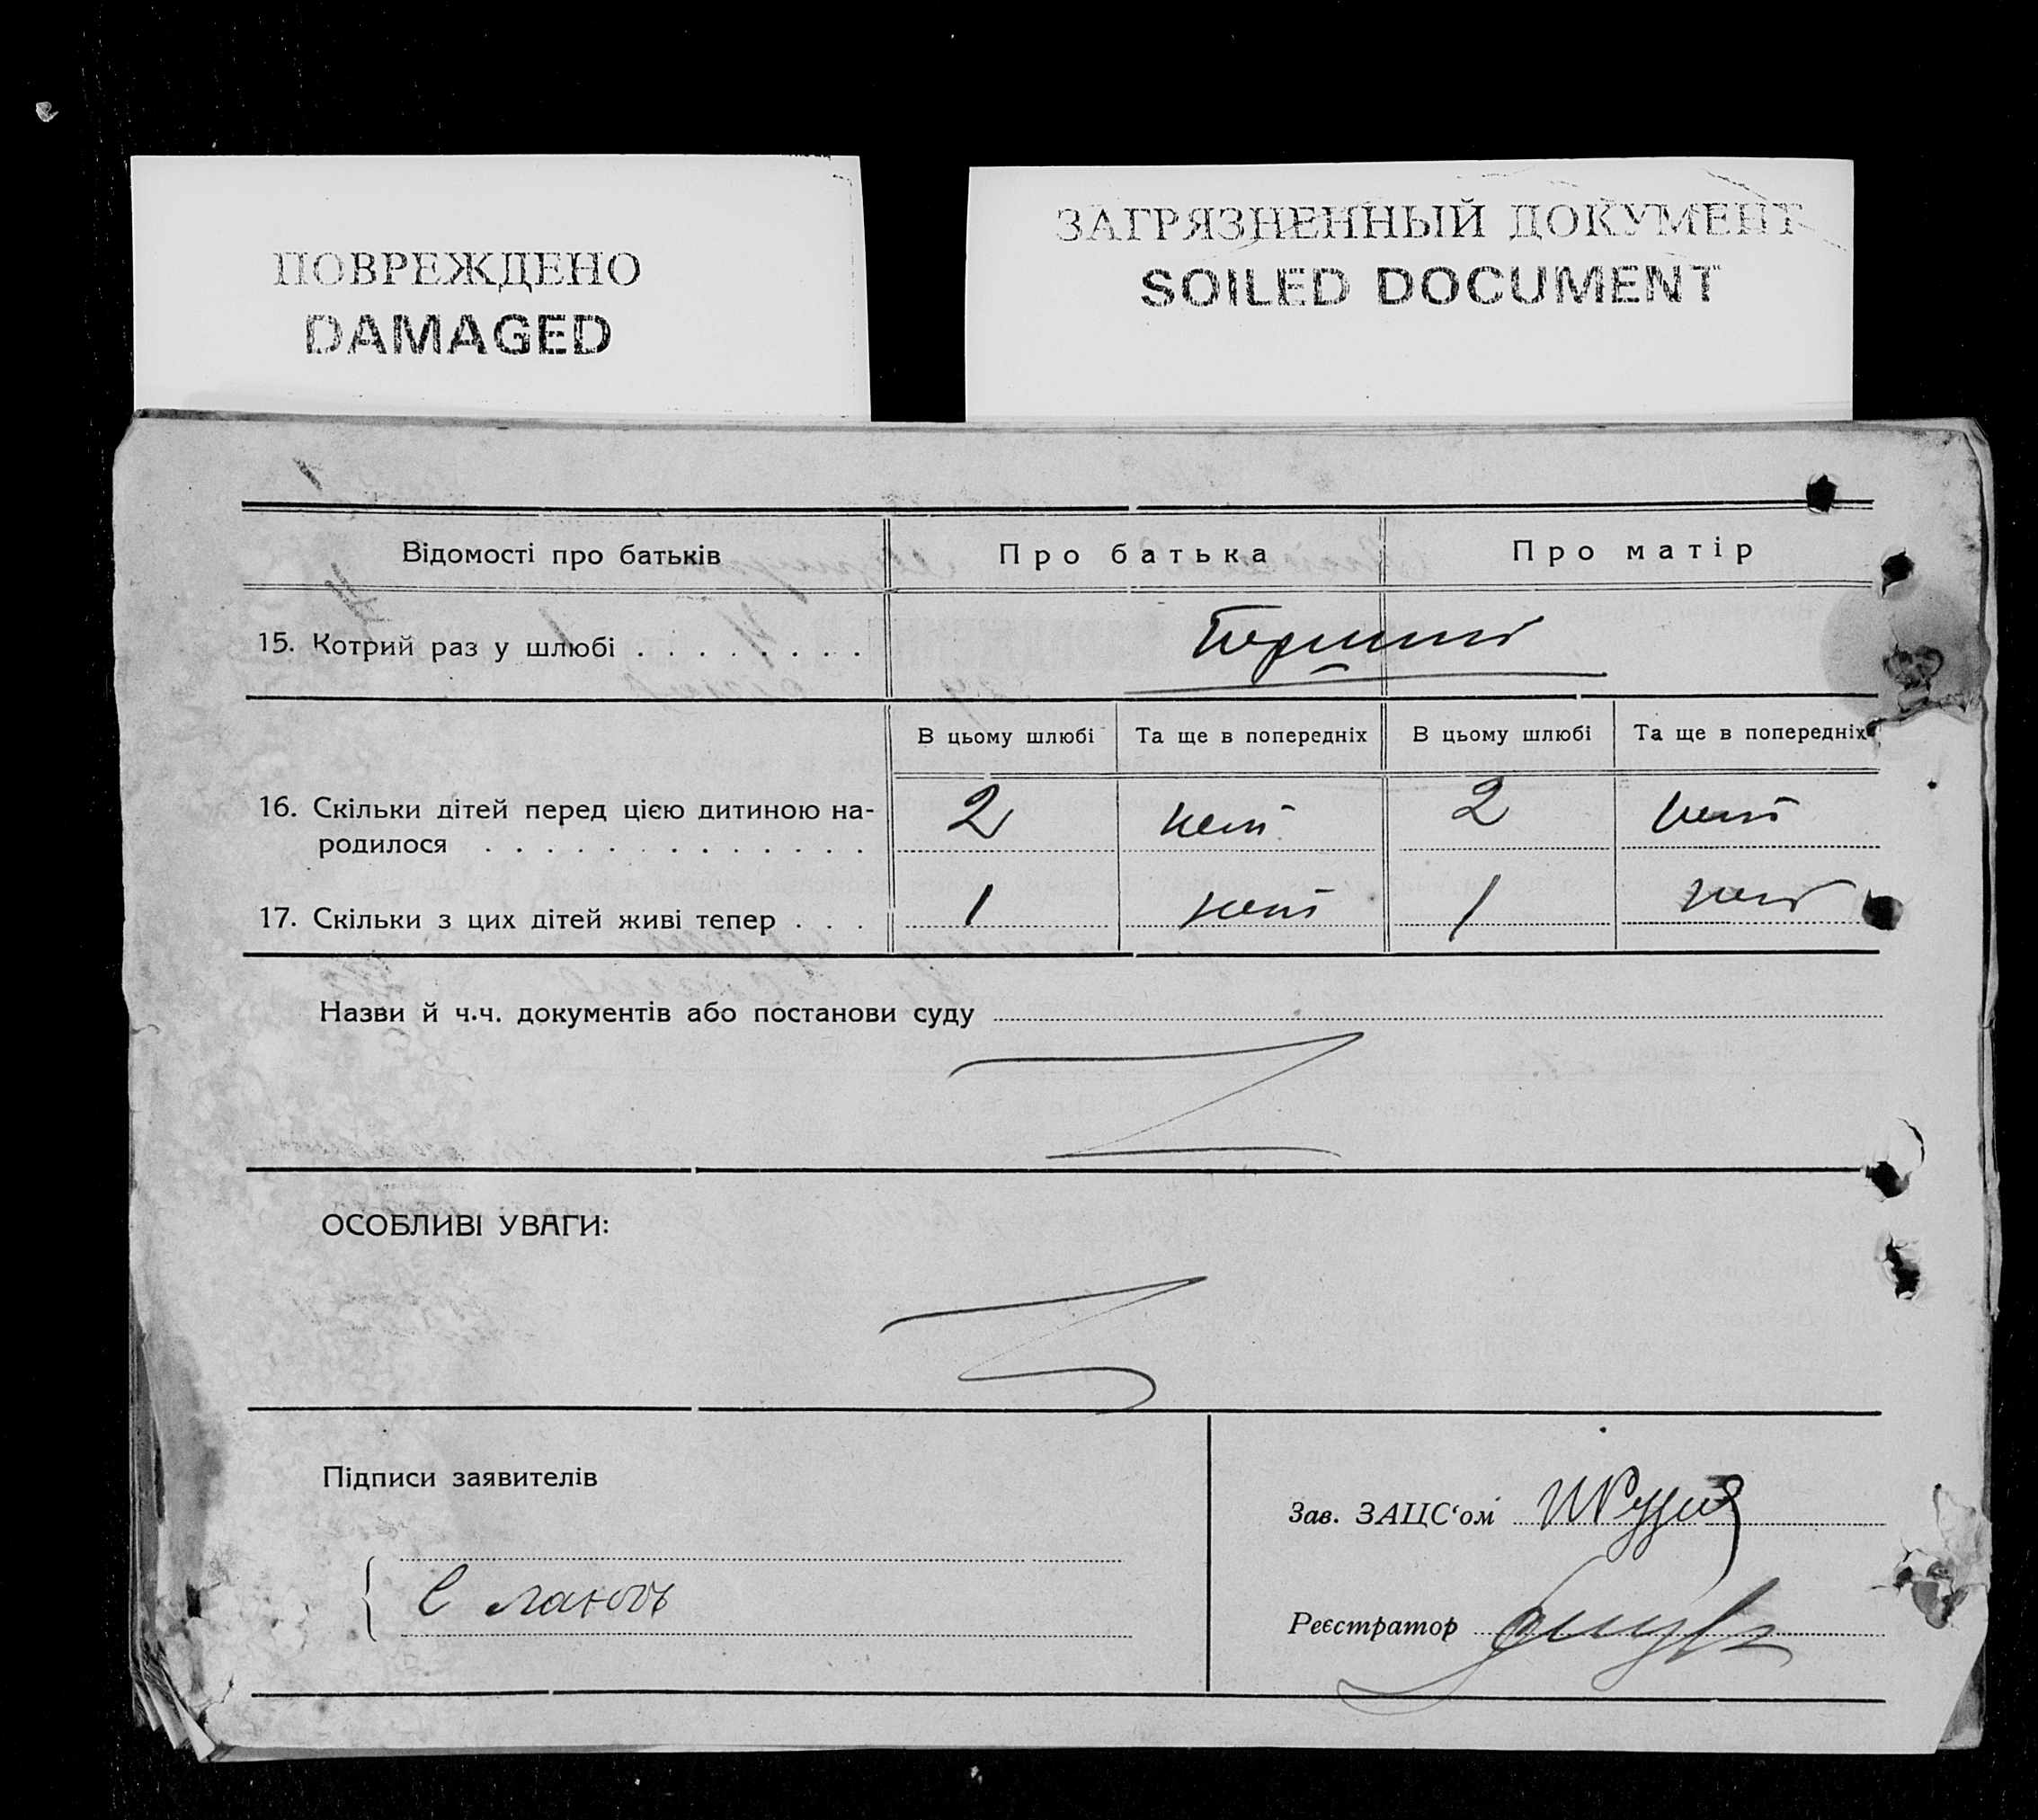 ПОВРЕЖДЕНО
DAMAGED
ЗАГРЯЗНЕННЫЙ ДОКУМЕНТ
SOILED DOCUMENT
Відомості про батьків Про батька Про матір
15. Котрий раз у шлюбі . . . . . . . .
В цьому шлюбі Та ще в попередніх В цьому шлюбі Та ще в попередніх
16. Скільки дітей перед цією дитиною на- 2 нет 2 нет
родилося . . . . . . . . . . . . . .
17. Скільки з цих дітей живі тепер . . . 1 нет 1 нет
Назви й ч.ч. документів або постанови суду
ОСОБЛИВІ УВАГИ:
Підписи заявителів
Зав. ЗАЦС‘ом
Реєстратор